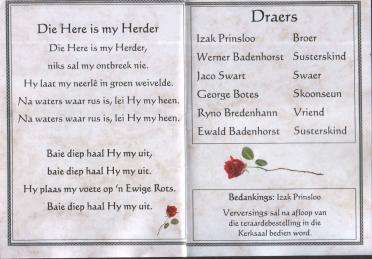 Die Here is my Herder
Die Here is my Herder,
niks sal my ontbreek nie.
Hy laat my neerlê in groen weivelde.
Na waters waar rus is, lei Hy my heen.
Na waters waar rus is, lei Hy my heen.
Baie diep haal Hy my uit,
baie diep haal Hy my uit.
Hy plaas my voete op 'n Ewige Rots.
Baie diep haal Hy my uit.
Draers
Izak Prinsloo Broer
Werner Badenhorst Susterskind
Jaco Swart Swaer
George Botes Skoonseun
Ryno Bredenhann Vriend
Ewald Badenhorst Susterskind
Bedankings: Izak Prinsloo
Verversings sal na afloop van
die teraardebestelling in die
Kerksaal bedien word.